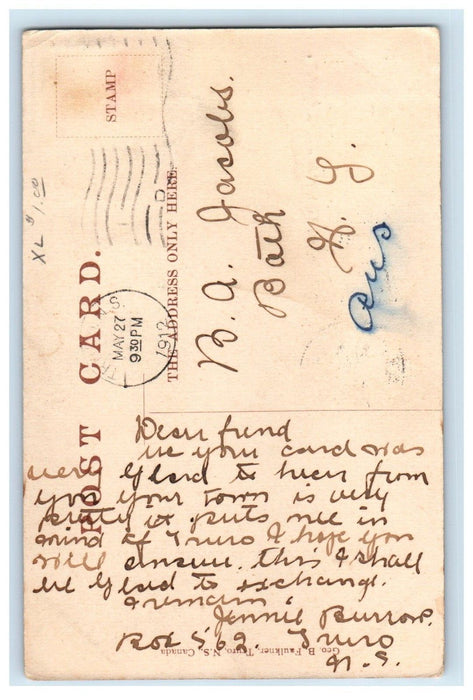 POST CARD.
THE ADDRESS ONLY HERE.
STAMP
MAY 27
9 30 PM
1912
XL $1.00
B. A. Jacobs.
Bath
N. Y.
Ans
Dear friend
re your card was
very Glad to hear from
you your town is very
pretty it puts me in
mind of Truro I hope you
will answer this I shall
be Glad to exchange.
I remain
Jennie Burrows.
Box 562. Truro
N.S.
Geo. B. Faulkner, Truro, N.S., Canada